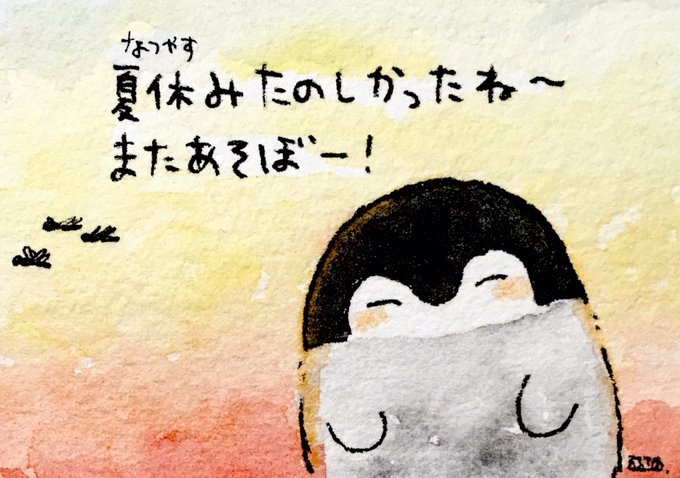 なつやす
夏休みたのしかったね～
またあそぼー！